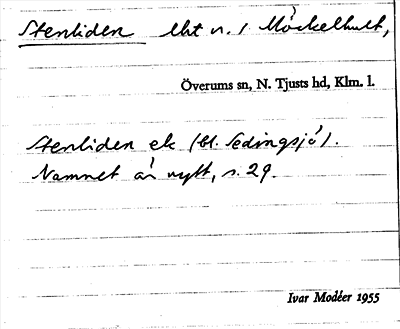 Stenliden lht n. 1 Möckelhult,
Överums sn, N. Tjusts hd, Klm. l.
Stenliden ek (bl. Sedingsjö).
Namnet är nytt, s. 29.
Ivar Modéer 1955